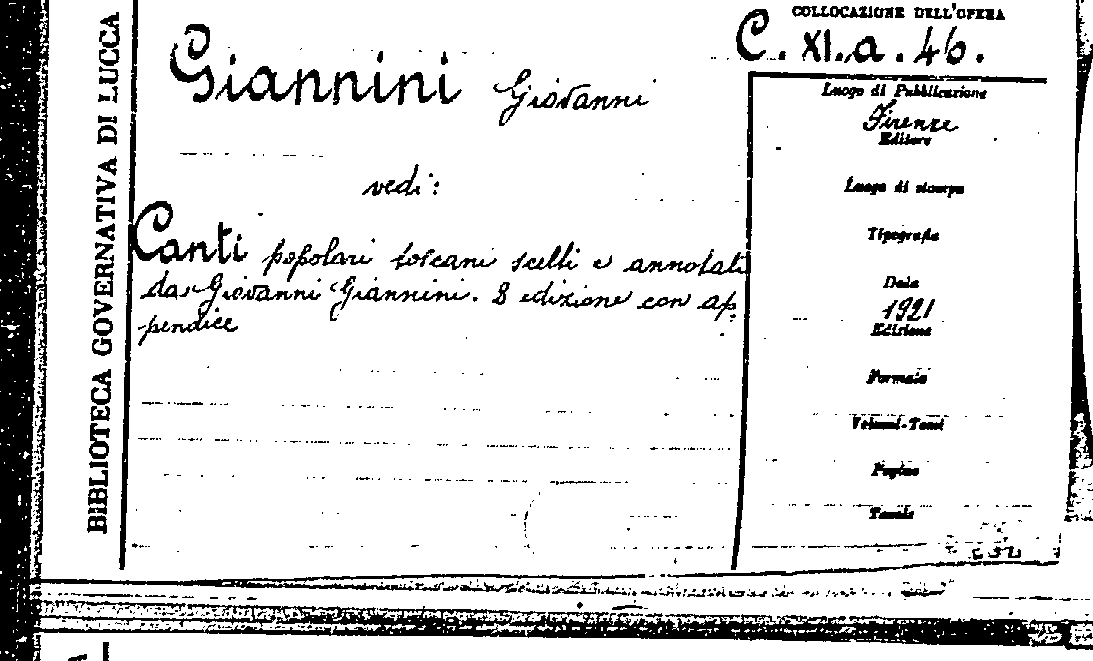 BIBLIOTECA GOVERNATIVA DI LUCCA
COLLOCAZIONE DELL'OPERA
C. XI. a. 46.
Giannini Giovanni
vedi:
Canti popolari toscani scelti e annotati
da Giovanni Giannini. 2 edizione con ap,
pendice
Luogo di Pubblicazione
Firenze
Editore
Luogo di stampa
Tipografia
Data
1921
Edizione
Formato
Volumi-Tomi
Pagine
Tavole